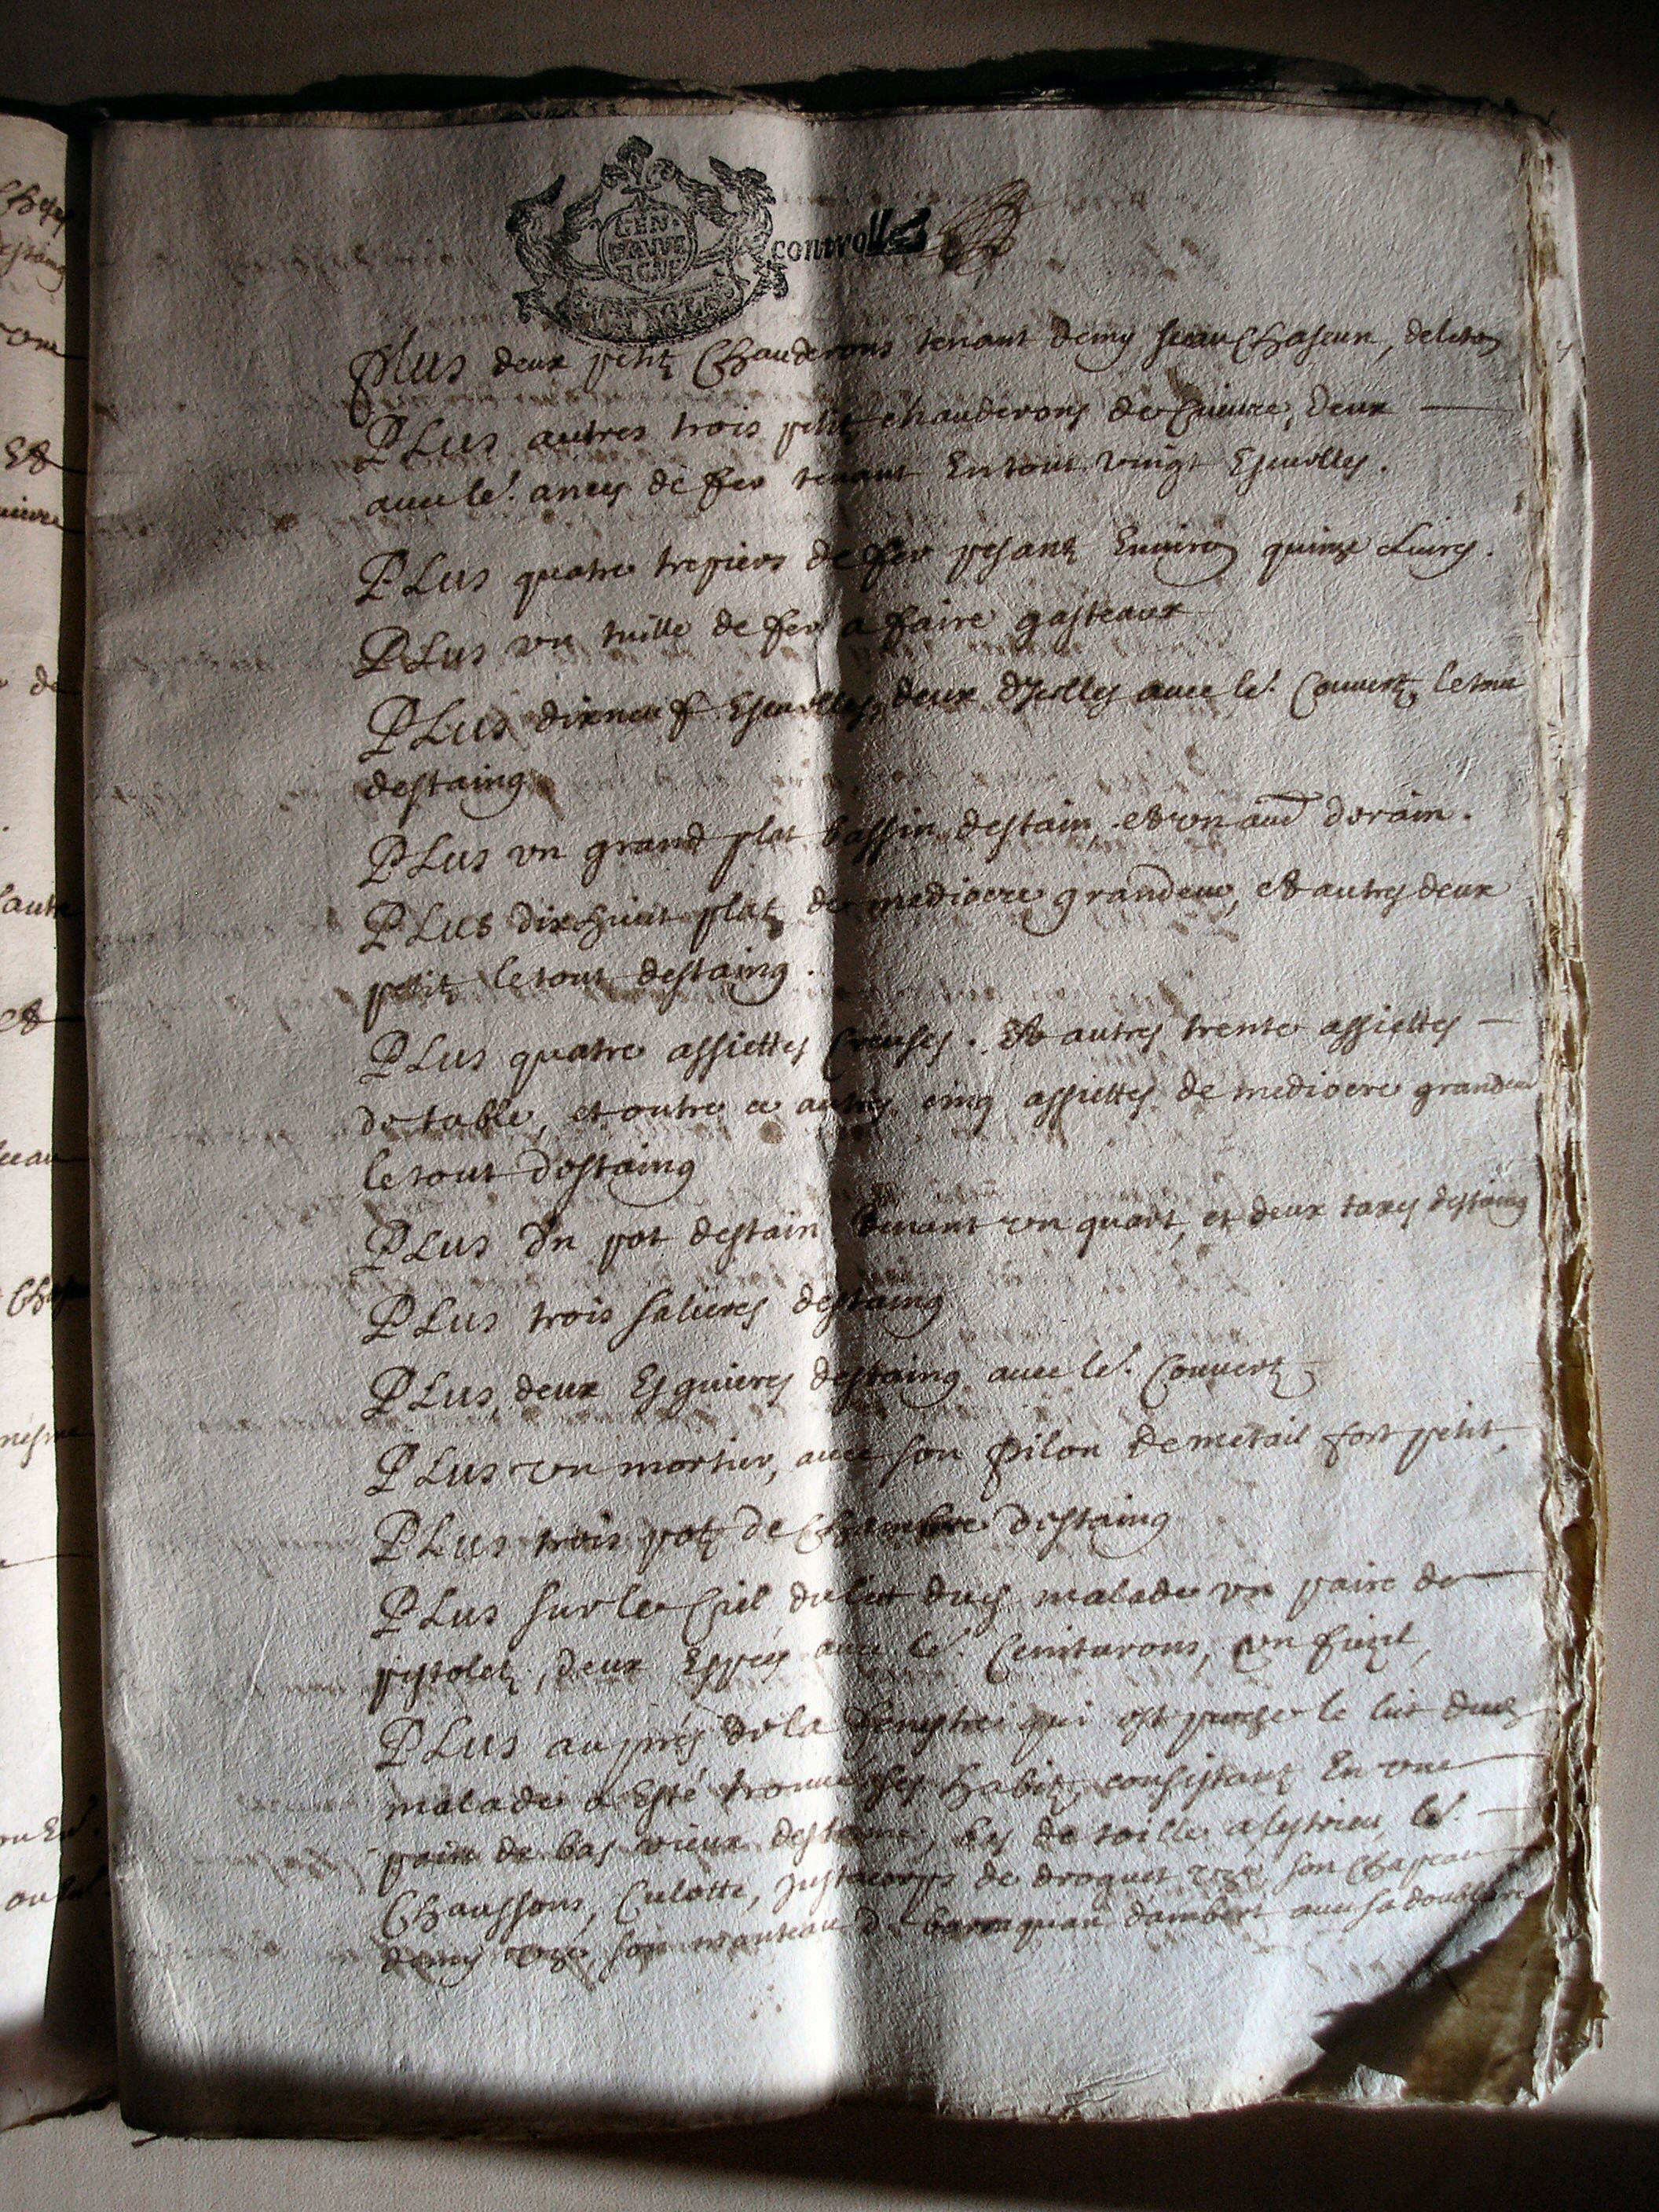 GEN. DAVVERGNE
controlle
Plus deux petitz Chauderons tenant demy seau Chascun, deleton
PLus autres trois petitz chauderons de Cuivre, deux
avec le.^s ances de fer tenant En tout vingt Escuelles.
PLus quatre trepiers de fer pesantz Environ quinze Livres.
PLus vn tuille de fer a faire gasteaux
PLus dixneuf Escuelles, deux avec le.^s Couvertz, letout
destaing
PLus vn grand plat bassin destain, et vn au^d derain.
PLus dixhuict platz de mediocre grandeur, et autres deux
petitz letout destaing.
PLus quatre assiettes Creuses. Et autres trente assiettes
de table, et outre ce autres cinq assiettes de mediocre grandeur
letout destaing
PLus Un pot destain tenant vn quart, et deux taxes destaing
PLus trois salieres destaing
PLus, deux Esguieres destaing avec le.^s Couvertz
PLus vn mortier, avec son pilon de metail fort petit,
PLus trois potz de Chambre destaing
PLus sur le Ciel du lict malade vn paire de
pistoletz, deux Espees avec le.^s Cintarons, vn fuzil,
PLus aupres de la fenestre qui est proche le lict
malade a Esté trouvé ses habitz, consistantz En vne
paire de bas vieux bas de toille a lestrieu, le.^s
Chaussons, Culotte, Justacorps de droguet vzé, son Chapeau
demy vzé, son manteau de barraquan dambert avec sa doublure